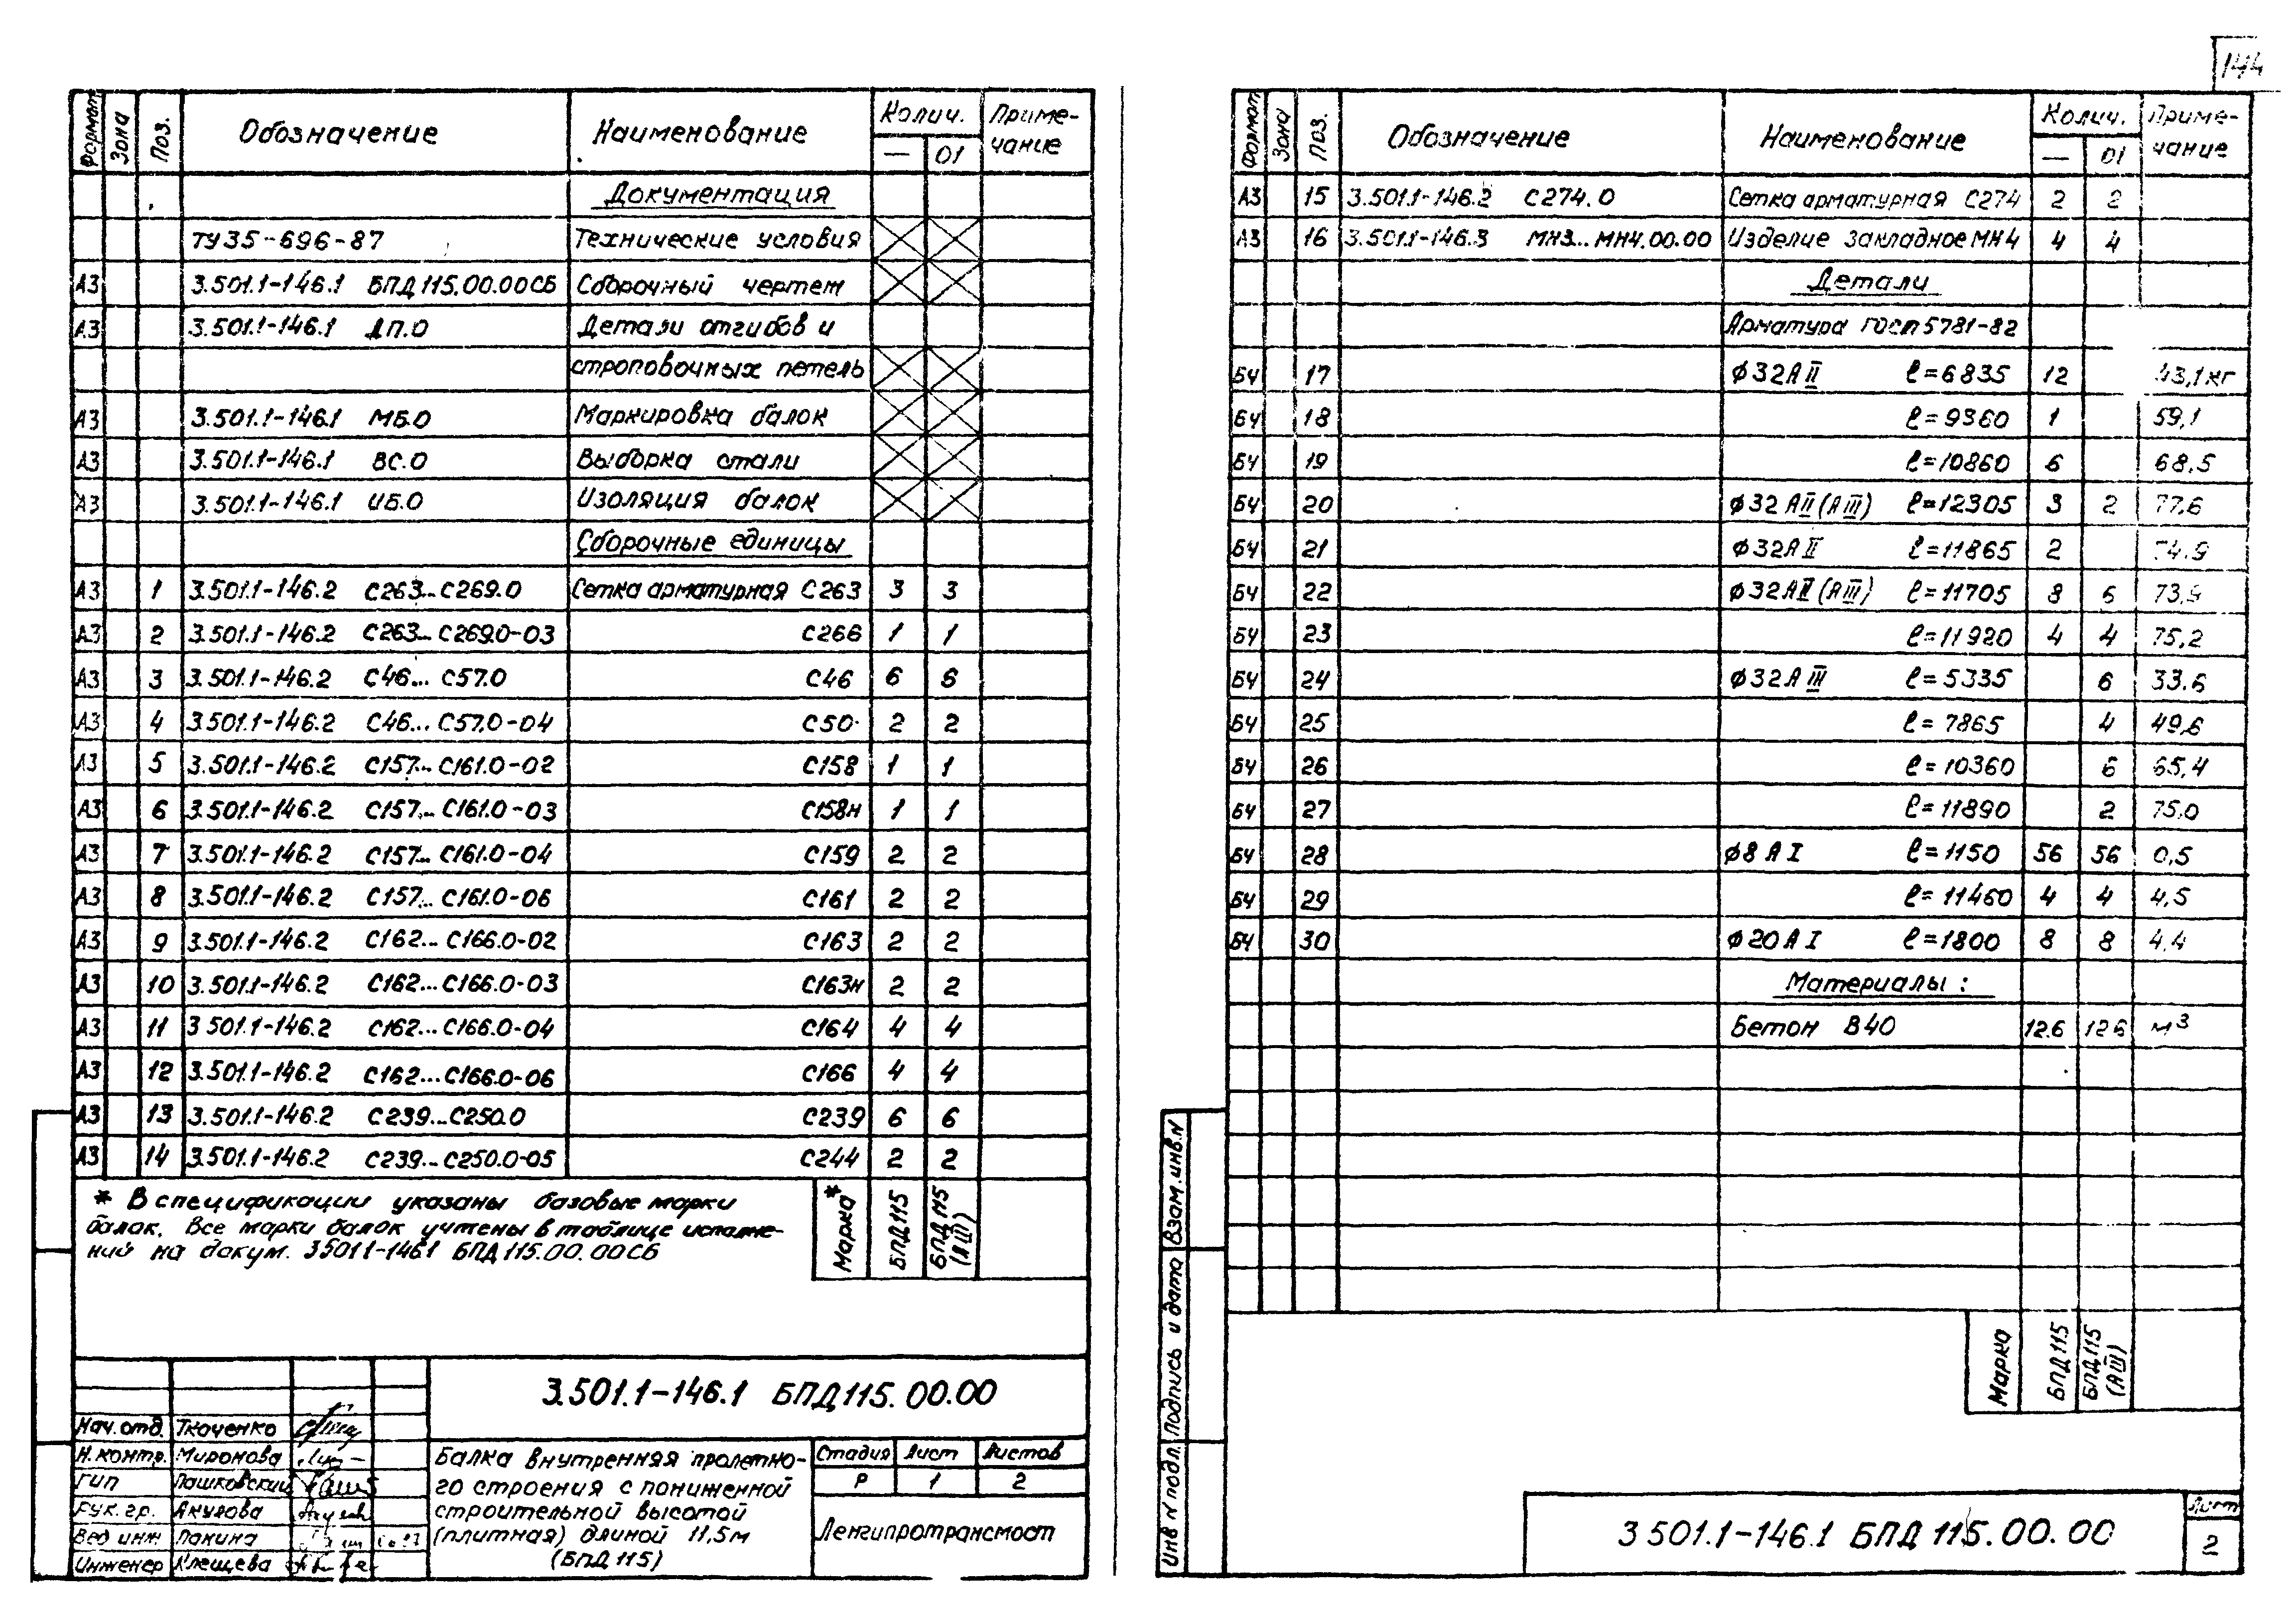 144
Формат Зона Поз. Обозначение Наименование Колич. Примечание
— 01
Документация
ТУ35-696-87 Технические условия
А3 3.501.1-146.1 БПД115.00.00СБ Сборочный чертеж
А3 3.501.1-146.1 ДП.0 Детали отгибов и
строповочных петель
А3 3.501.1-146.1 МБ.0 Маркировка балок
А3 3.501.1-146.1 ВС.0 Выборка стали
А3 3.501.1-146.1 ИБ.0 Изоляция балок
Сборочные единицы
А3 1 3.501.1-146.2 С263...С269.0 Сетка арматурная С263 3 3
А3 2 3.501.1-146.2 С263...С269.0-03 С266 1 1
А3 3 3.501.1-146.2 С46...С57.0 С46 6 6
А3 4 3.501.1-146.2 С46...С57.0-04 С50 2 2
А3 5 3.501.1-146.2 С157...С161.0-02 С158 1 1
А3 6 3.501.1-146.2 С157...С161.0-03 С158н 1 1
А3 7 3.501.1-146.2 С157...С161.0-04 С159 2 2
А3 8 3.501.1-146.2 С157...С161.0-06 С161 2 2
А3 9 3.501.1-146.2 С162...С166.0-02 С163 2 2
А3 10 3.501.1-146.2 С162...С166.0-03 С163н 2 2
А3 11 3.501.1-146.2 С162...С166.0-04 С164 4 4
А3 12 3.501.1-146.2 С162...С166.0-06 С166 4 4
А3 13 3.501.1-146.2 С239...С250.0 С239 6 6
А3 14 3.501.1-146.2 С239...С250.0-05 С244 2 2
* В спецификации указаны базовые марки
балок. Все марки балок учтены в таблице исполне-
ний на докум. 3.501.1-146.1 БПД115.00.00СБ
Марка* БПД115 БПД115 (АIII)
3.501.1-146.1 БПД115.00.00
Нач. отд. Ткаченко
Н. контр. Миронова
ГИП Пашковский
Рук. гр. Акулова
Вед инж Панина
Инженер Клещева
Балка внутренняя пролетно-
го строения с пониженной
строительной высотой
(плитная) длиной 11,5м
(БПД115)
Стадия Лист Листов
Р 1 2
Ленгипротрансмост
Формат Зона Поз. Обозначение Наименование Колич. Примечание
— 01
А3 15 3.501.1-146.2 С274.0 Сетка арматурная С274 2 2
А3 16 3.501.1-146.3 МН3...МН4.00.00 Изделие закладное МН4 4 4
Детали
Арматура ГОСТ 5781-82
БЧ 17 ϕ32АII ℓ=6835 12 43,1кг
БЧ 18 ℓ=9360 1 59,1
БЧ 19 ℓ=10860 6 68,5
БЧ 20 ϕ32АII(АIII) ℓ=12305 3 2 77,6
БЧ 21 ϕ32АII ℓ=11865 2 74,9
БЧ 22 ϕ32АII(АIII) ℓ=11705 8 6 73,9
БЧ 23 ℓ=11920 4 4 75,2
БЧ 24 ϕ32АIII ℓ=5335 6 33,6
БЧ 25 ℓ=7865 4 49,6
БЧ 26 ℓ=10360 6 65,4
БЧ 27 ℓ=11890 2 75,0
БЧ 28 ϕ8АI ℓ=1150 56 56 0,5
БЧ 29 ℓ=11460 4 4 4,5
БЧ 30 ϕ20АI ℓ=1800 8 8 4,4
Материалы:
Бетон В40 12.6 12.6 м³
Марка БПД115 БПД115 (АIII)
Инв N подл. Подпись и дата Взам. инв. N
3.501.1-146.1 БПД115.00.00
Лист
2